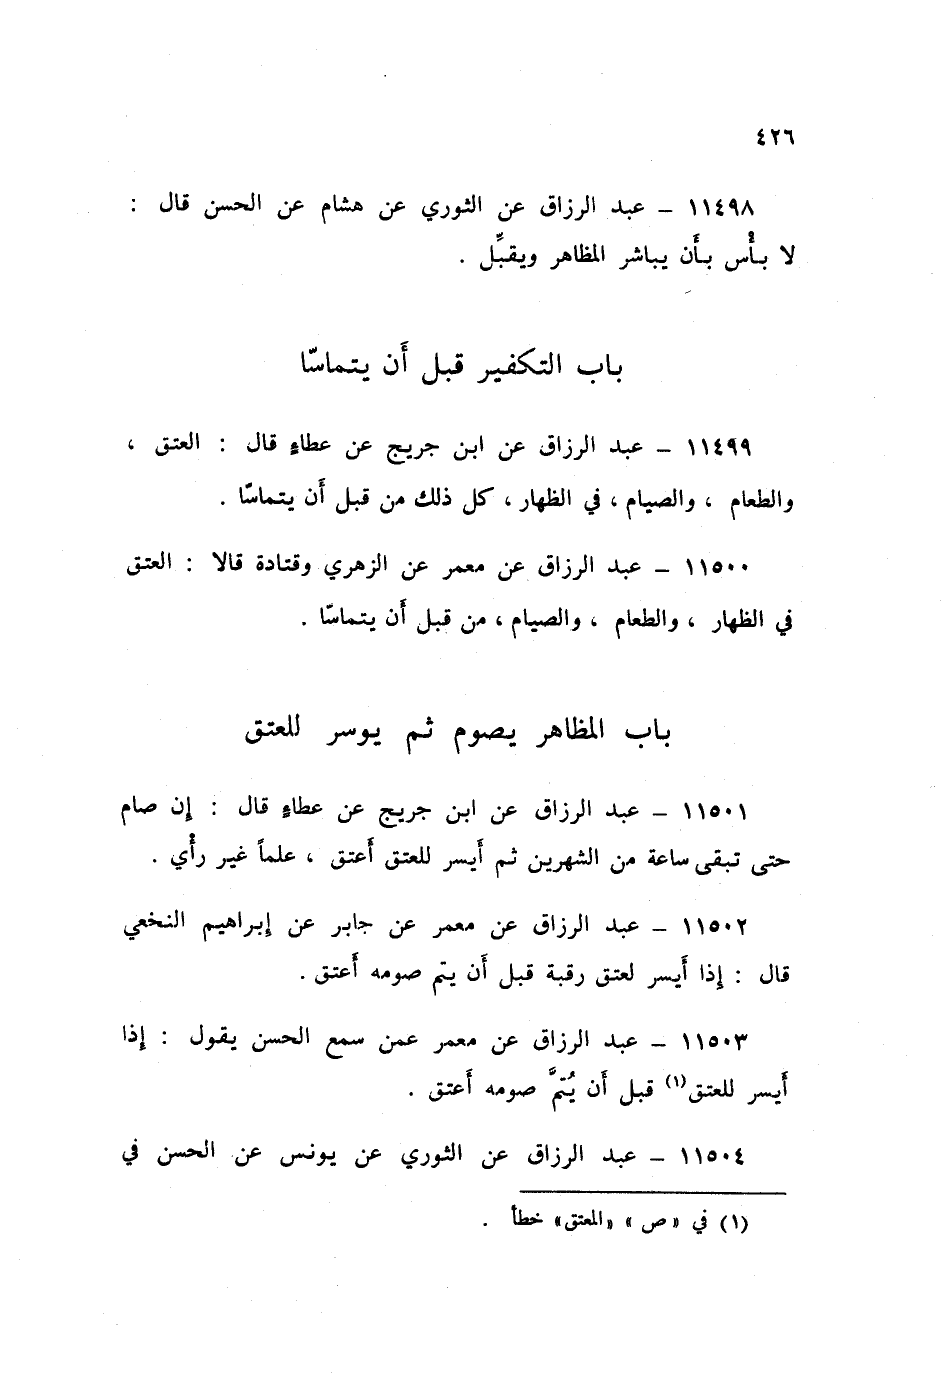 ٤٢٦
١١٤٩٨ – عبد الرزاق عن الثوري عن هشام عن الحسن قال :
لا بأْس بأَن يباشر المظاهر ويقبِّل .
باب التكفير قبل أَن يتماسّا
١١٤٩٩ – عبد الرزاق عن ابن جريج عن عطاءٍ قال : العتق ،
والطعام ، والصيام ، في الظهار ، كل ذلك من قبل أَن يتماسّا .
١١٥٠٠ – عبد الرزاق عن معمر عن الزهري وقتادة قالا : العتق
في الظهار ، والطعام ، والصيام ، من قبل أَن يتماسّا .
باب المظاهر يصوم ثم يوسر للعتق
١١٥٠١ – عبد الرزاق عن ابن جريج عن عطاءٍ قال : إِن صام
حتى تبقى ساعة من الشهرين ثم أَيسر للعتق أَعتق ، علماً غير رأْي .
١١٥٠٢ – عبد الرزاق عن معمر عن جابر عن إِبراهيم النخعي
قال : إِذا أَيسر لعتق رقبة قبل أَن يتم صومه أَعتق .
١١٥٠٣ – عبد الرزاق عن معمر عمن سمع الحسن يقول : إِذا
أَيسر للعتق(١) قبل أَن يُتمَّ صومه أَعتق .
١١٥٠٤ – عبد الرزاق عن الثوري عن يونس عن الحسن في
(١) في « ص » «المعتق» خطأ .